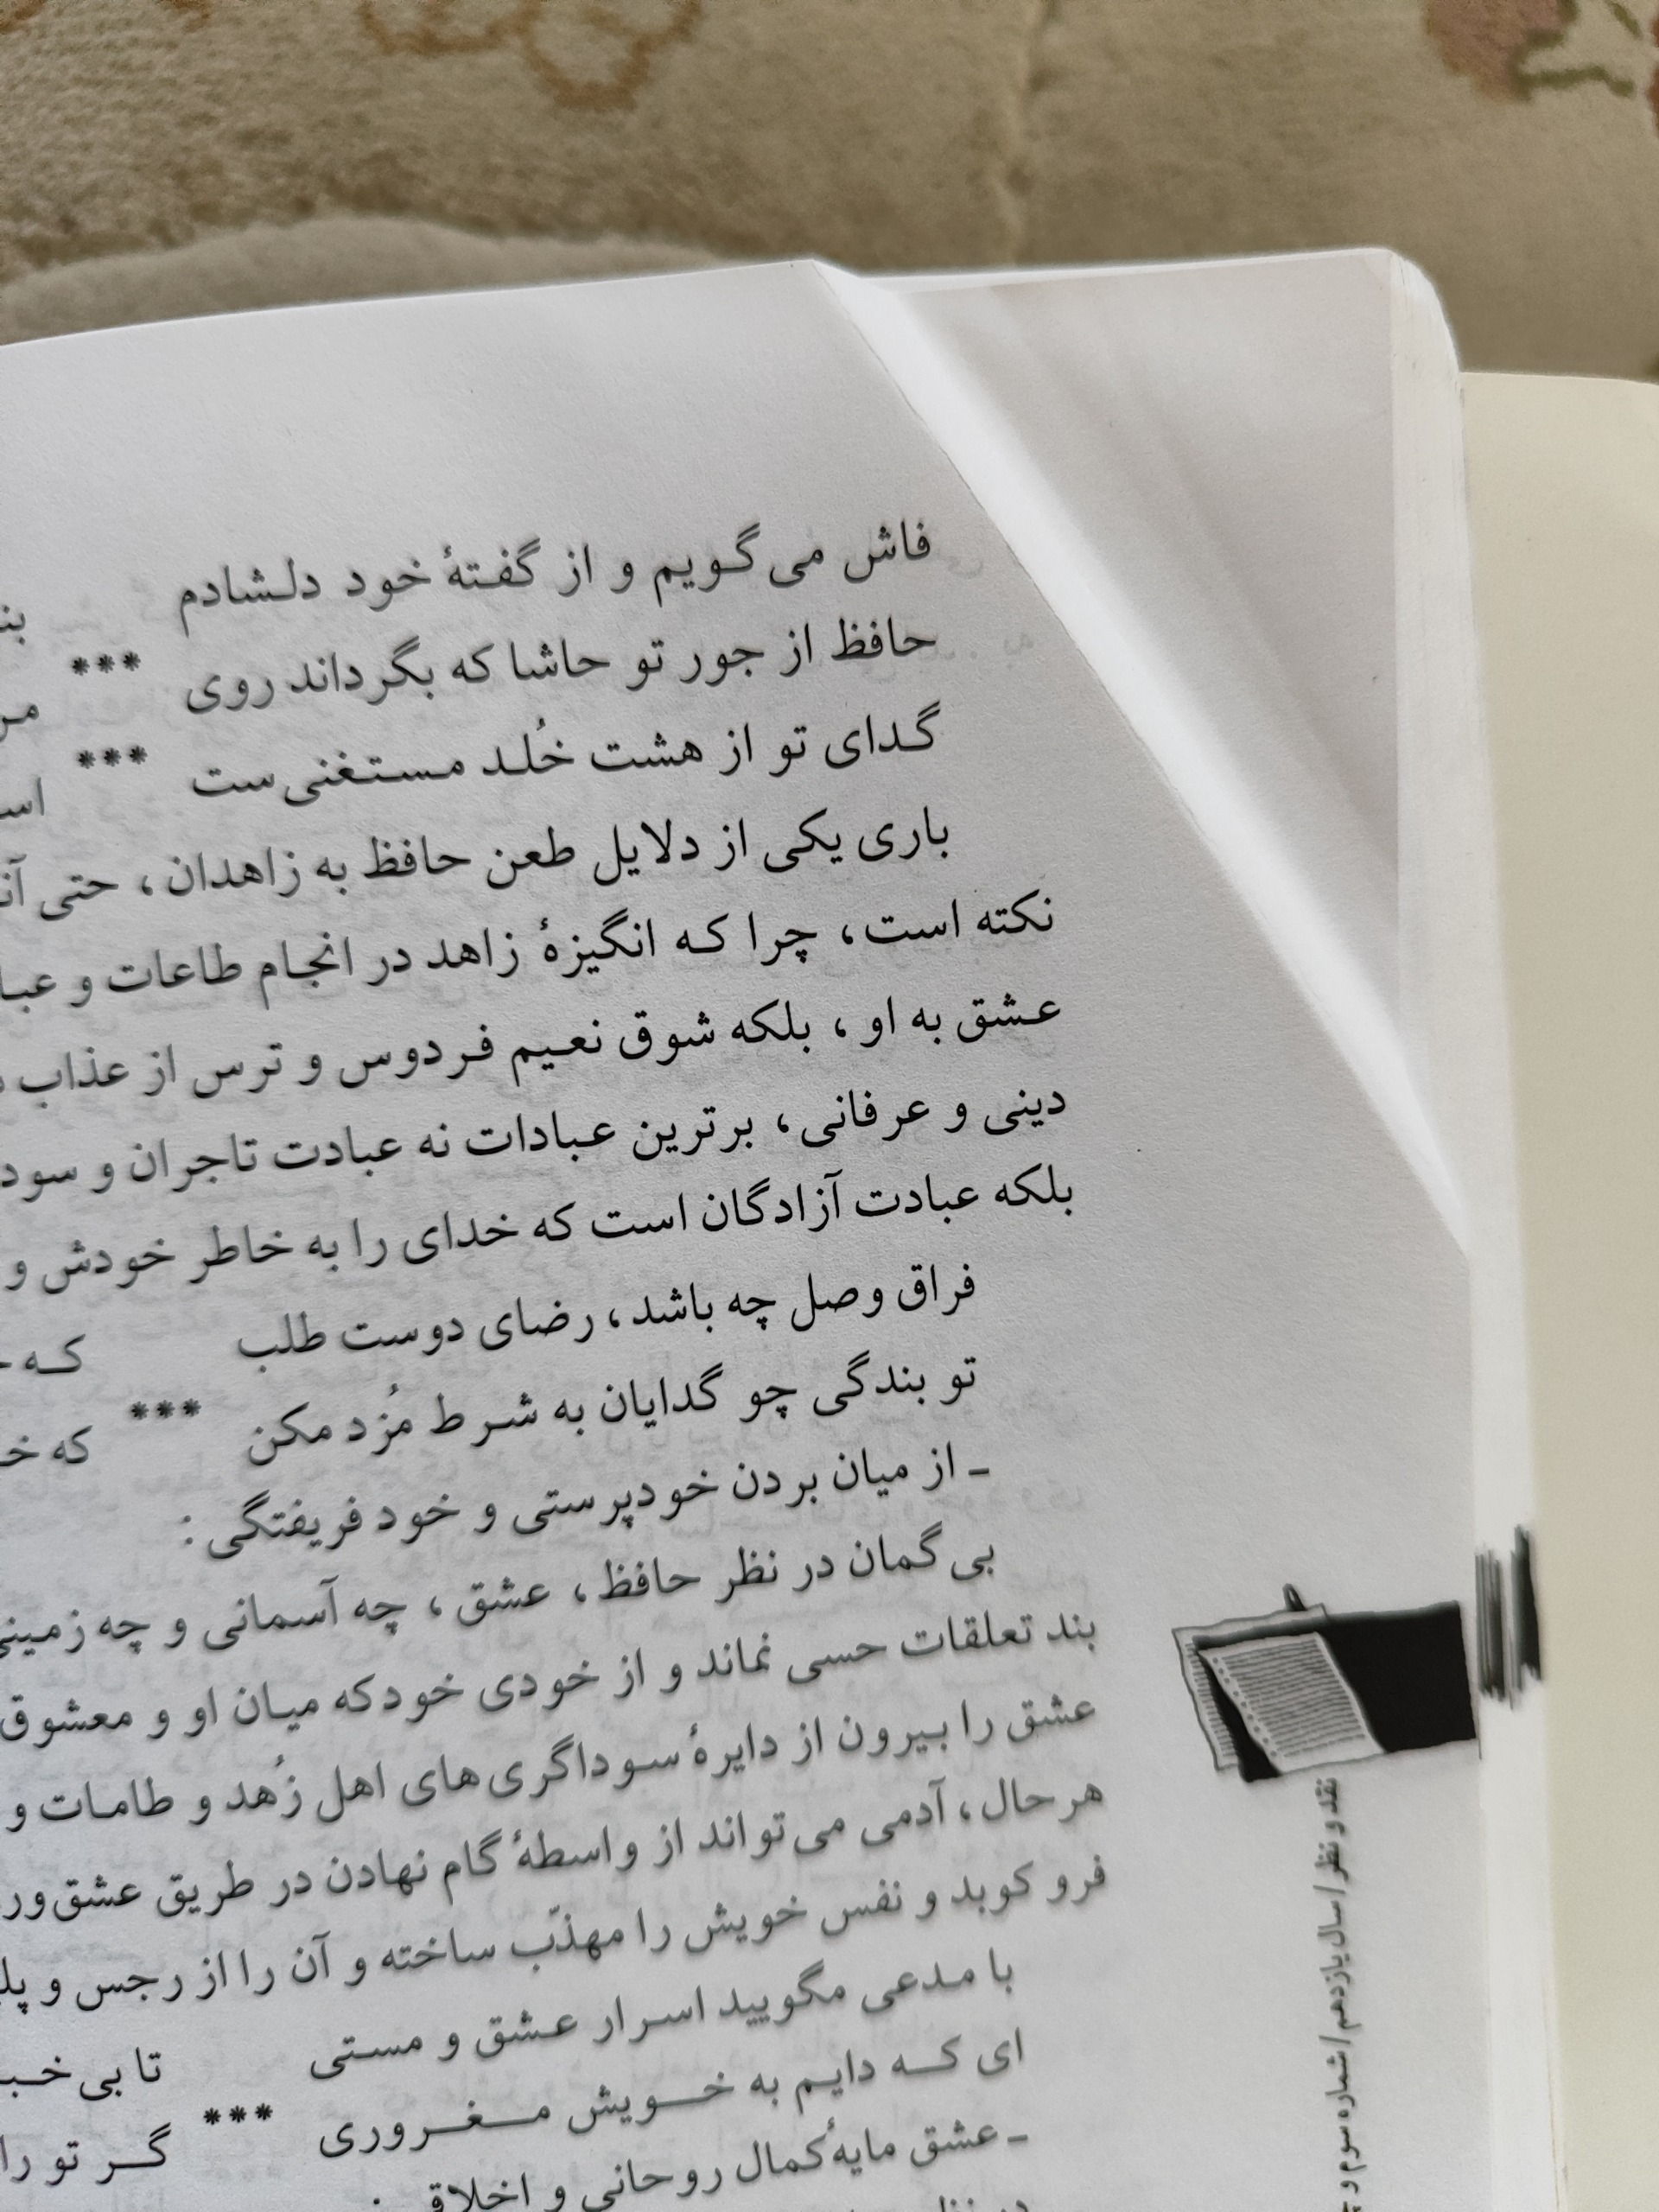 فاش می‌گویم و از گفتهٔ خود دلشادم
حافظ از جور تو حاشا که بگرداند روی ***
گدای تو از هشت خُلد مستغنی‌ست ***
باری یکی از دلایل طعن حافظ به زاهدان، حتی
نکته است، چرا که انگیزهٔ زاهد در انجام طاعات و
عشق به او، بلکه شوق نعیم فردوس و ترس از عذاب
دینی و عرفانی، برترین عبادات نه عبادت تاجران و
بلکه عبادت آزادگان است که خدای را به خاطر خودش و
فراق وصل چه باشد، رضای دوست طلب که
تو بندگی چو گدایان به شرط مُزد مکن *** که
ـ از میان بردن خودپرستی و خود فریفتگی:
بی‌گمان در نظر حافظ، عشق، چه آسمانی و چه زمینی
بند تعلقات حسی نماند و از خودی خود که میان او و معشوق
عشق را بیرون از دایرهٔ سوداگری‌های اهل زُهد و طامات و
هر حال، آدمی می‌تواند از واسطهٔ گام نهادن در طریق
فرو کوبد و نفس خویش را مهذّب ساخته و آن را از رجس و
با مدعی مگویید اسرار عشق و مستی تا بی
ای که دایم به خویش مغروری *** گر تو را
ـ عشق مایهٔ کمال روحانی و اخلاقی:
نقد و نظر / سال یازدهم / شماره سوم و